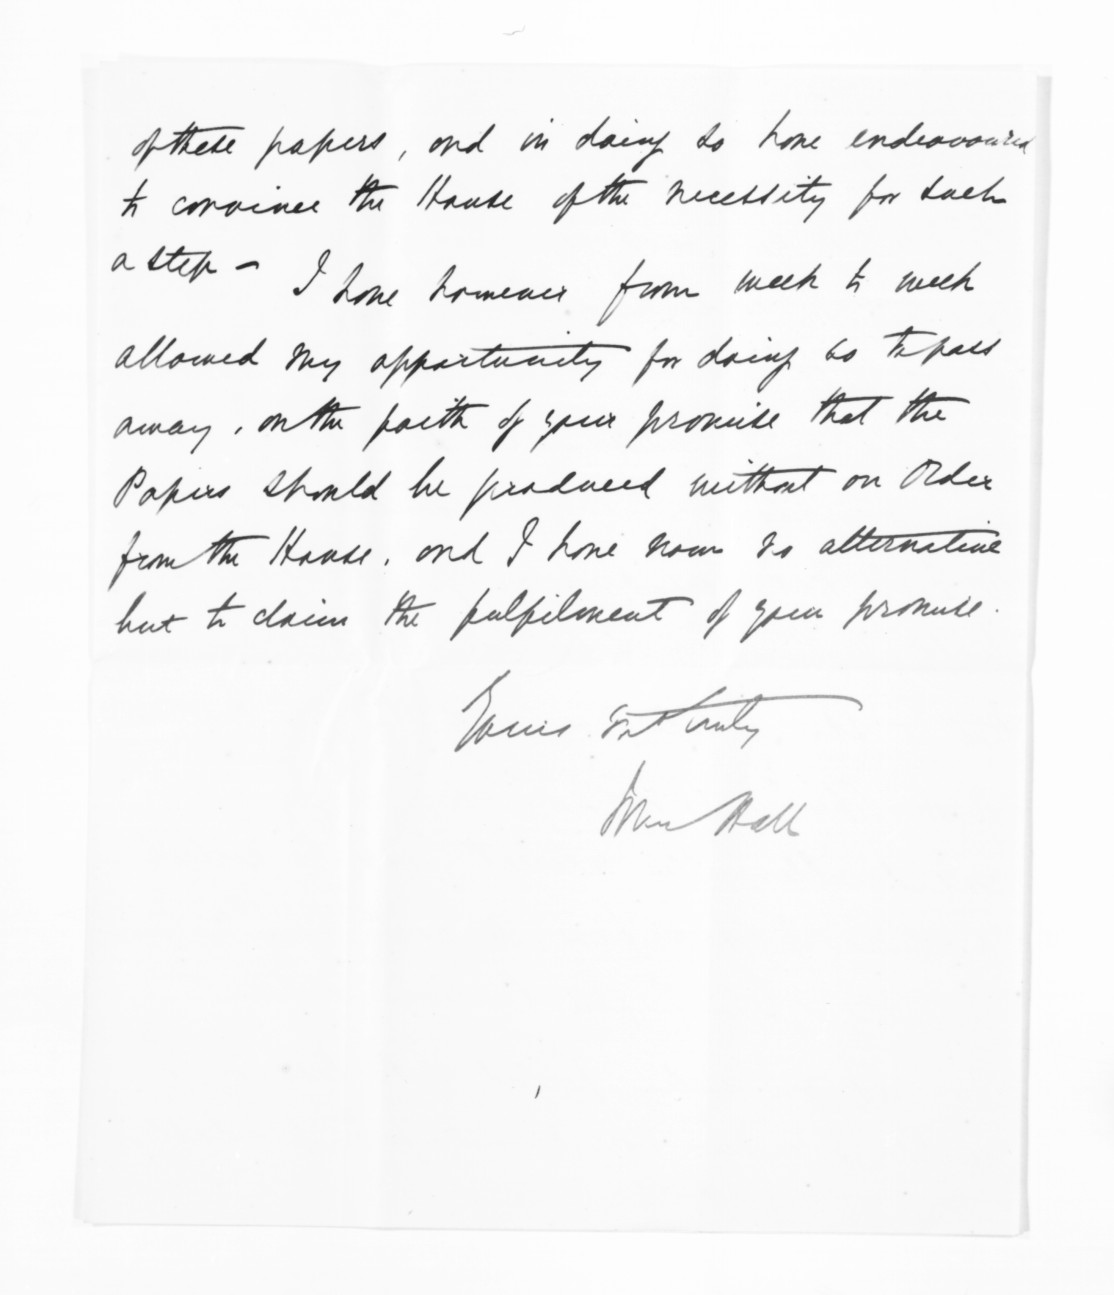 of these papers, and in doing so have endeavoured
to convince the House of the necessity for such
a step —
I have however from week to week
allowed my opportunity for doing so to pass
away, on the faith of your promise that the
Papers should be produced without an Order
from the House, and I have now no alternative
but to claim the fulfilment of your promise.
Yours truly
John Hall